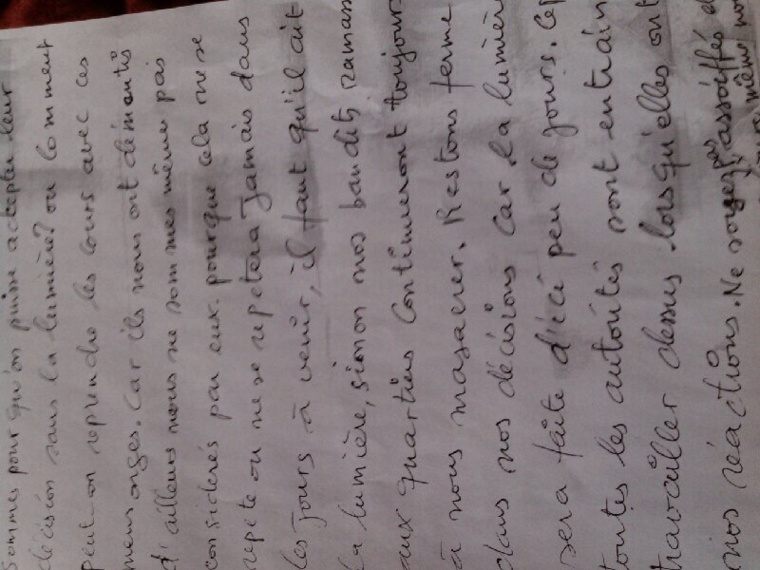 sommes pour qu'on puisse accepter leur
décision sans la lumière? ou comment
peut-on reprendre les cours avec ces
mensonges. Car ils nous ont démentis
d'ailleurs nous ne sommes même pas
considerés par eux. pourque cela ne se
repète ou ne se repetera Jamais dans
les jours à venir, il faut qu'il ait
la lumière, sinon nos bandits ramas
aux quartiers continueront toujours
à nous masacrer. Restons ferme
dans nos décisions car la lumière
sera faite d'ici peu de jours. Cep
toutes les autorités sont entrain
travailler dessus lorsqu'elles ont
nos réactions. Ne soyez pas assoiffés d
même no